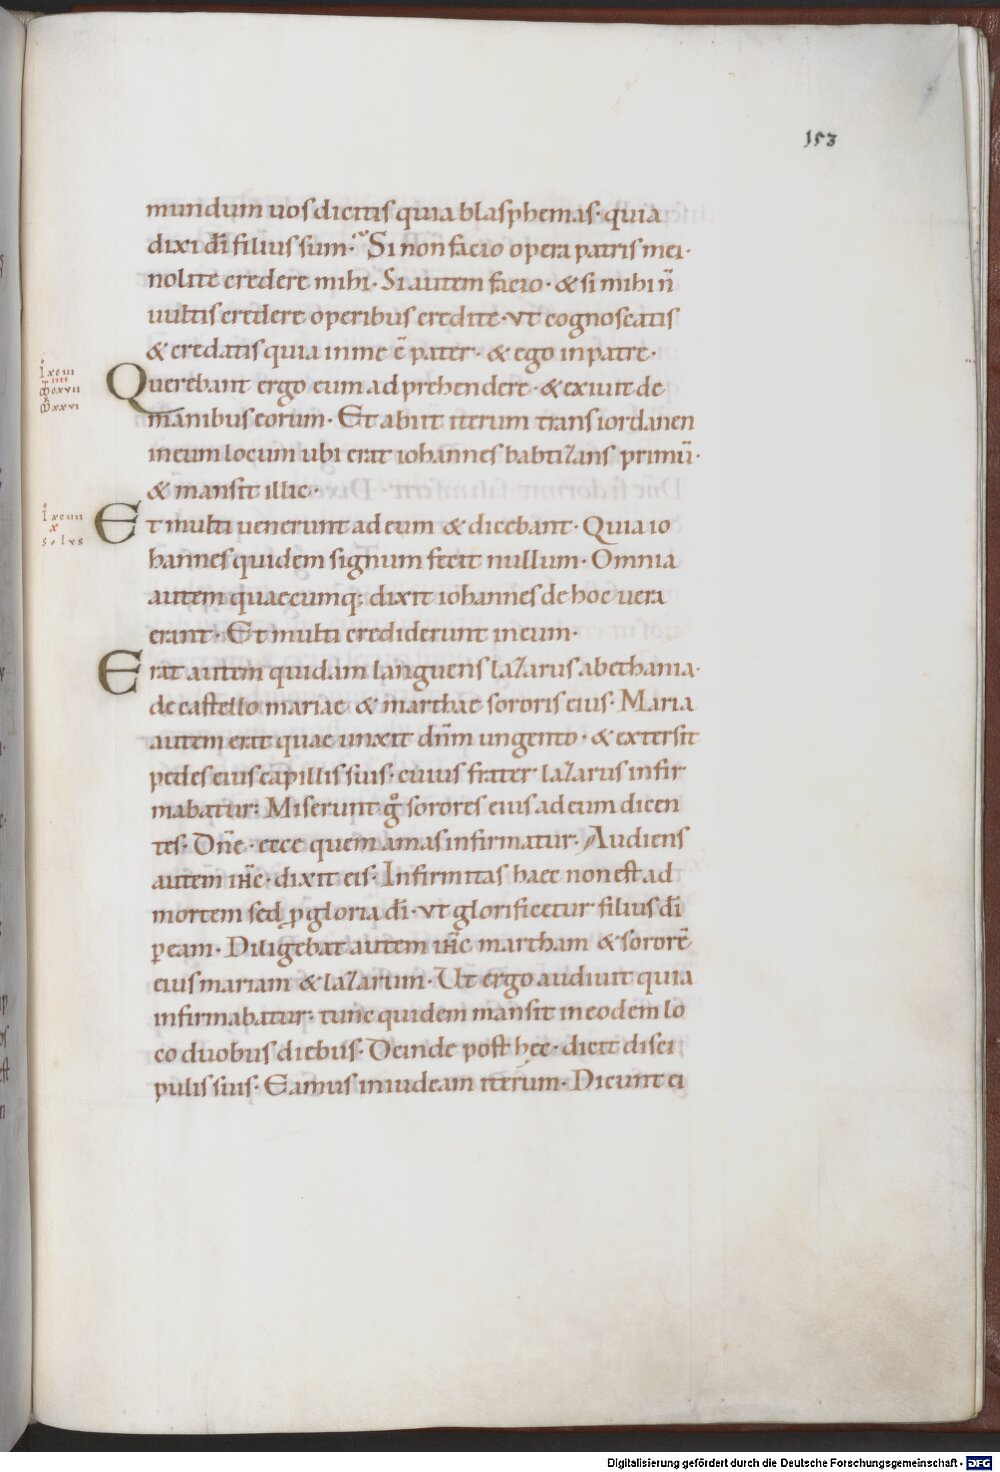 153
mundum uos dicitis quia blasphemas· quia
dixi dī filius sum· Si non facio opera patris mei·
nolite credere mihi· Si autem facio· & si mihi n̄
uultis credere operibus credite· vt cognoscatis
& credatis quia in me ē pater· & ego in patre·
Querebant ergo eum adprehendere· & exiuit de
manibus eorum· Et abiit iterum trans iordanen
in eum locum ubi erat iohannes babtizans primū·
& mansit illic·
Et multi uenerunt ad eum & dicebant· Quia io
hannes quidem signum fecit nullum· Omnia
autem quaecumq; dixit iohannes de hoc uera
erant· Et multi crediderunt in eum·
Erat autem quidam languens lazarus a bethania·
de castello mariae & marthae sororis eius· Maria
autem erat quae unxit dn̄m ungento· & extersit
pedes eius capillis suis· cuius frater lazarus infir
mabatur: Miserunt gͦ sorores eius ad eum dicen
tes· Dn̄e· ecce quem amas infirmatur· Audiens
autem ih̄c· dixit eis· Infirmitas haec non est ad
mortem sed ꝓ gloria dī· vt glorificetur filius dī
ꝑ eam· Diligebat autem ih̄c martham & sororē
eius mariam & lazarum· Ut ergo audiuit quia
infirmabatur: tunc quidem mansit in eodem lo
co duobus diebus· Deinde post hęc· dicit disci
pulis suis· Eamus in iudeam iterum· Dicunt ei
solvs
Digitalisierung gefördert durch die Deutsche Forschungsgemeinschaft - DFG